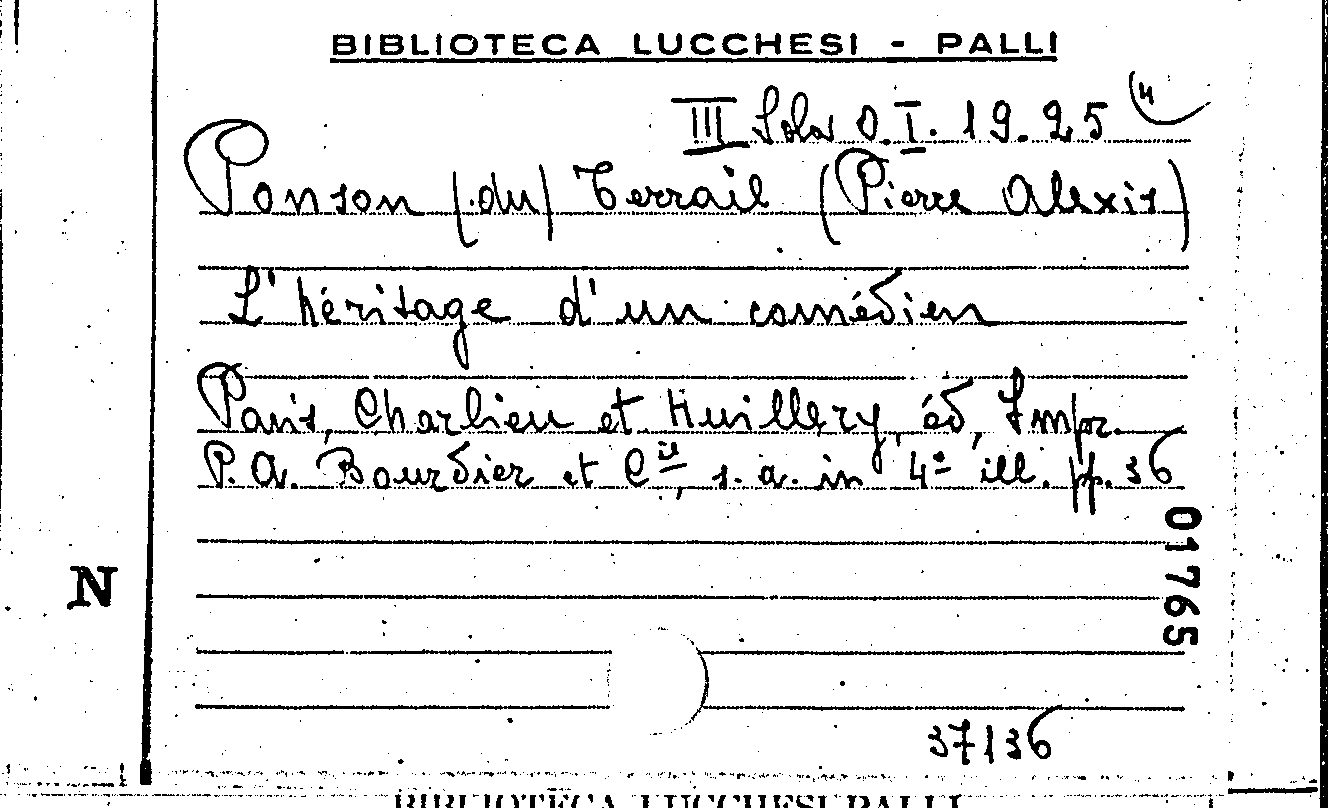 BIBLIOTECA LUCCHESI - PALLI
III Sala O.I. 19.25 (4
Ponson (du) Terrail (Pierre Alexis)
L'héritage d'un comédien
Paris, Charlieu et Huillery, éd, Impr.
P.A. Bourdier et Cie, s. a. in 4º ill. pp. 36
01765
N
37136
BIBLIOTECA LUCCHESI PALLI